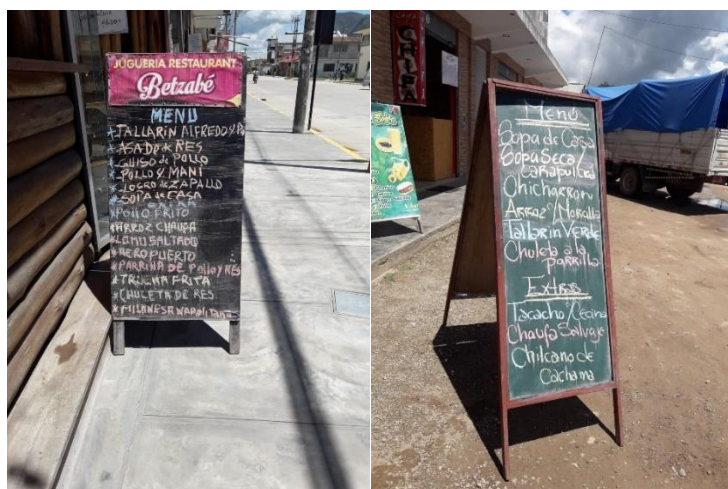 JUGUERIA RESTAURANT
Betzabé
MENU
*TALLARIN ALFREDO
*ASADO de RES
*GUISO de POLLO
*POLLO Y MANI
*LOCRO de ZAPALLO
*SOPA de CASA
EXTRA
*POLLO FRITO
*ARROZ CHAUFA
*LOMO SALTADO
*AEROPUERTO
*PARRINA DE Pollo y RES
*TRUCHA FRITA
*CHULETA DE RES
*MILANESA NAPOLITANA
CHIFA
Menú
Sopa de Casa
Sopa Seca/
Carapulcra
Chicharron
Arroz/Morolla
Tallarin Verde
Chuleta a la
parrilla
Extras
Tacacho/Cecina
Chaufa Salvaje
Chilcano de
Gachama